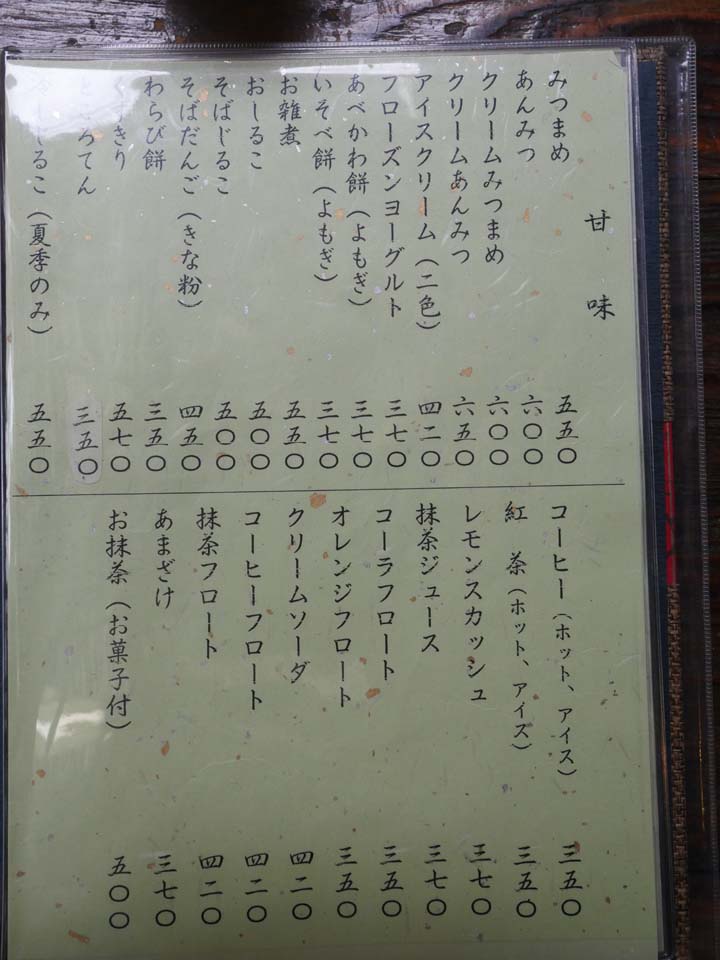 甘味
みつまめ 五五〇
あんみつ 六〇〇
クリームみつまめ 六〇〇
クリームあんみつ 六五〇
アイスクリーム（二色） 四二〇
フローズンヨーグルト 三七〇
あべかわ餅（よもぎ） 三七〇
いそべ餅（よもぎ） 三七〇
お雑煮 五五〇
おしるこ 五〇〇
そばじるこ 五〇〇
そばだんご（きな粉） 四五〇
わらび餅 三五〇
五七〇
三五〇
（夏季のみ） 五五〇
コーヒー（ホット、アイス） 三五〇
紅 茶（ホット、アイス） 三五〇
レモンスカッシュ 三七〇
抹茶ジュース 三七〇
コーラフロート 三五〇
オレンジフロート 三五〇
クリームソーダ 四二〇
コーヒーフロート 四二〇
抹茶フロート 四二〇
あまざけ 三七〇
お抹茶（お菓子付） 五〇〇